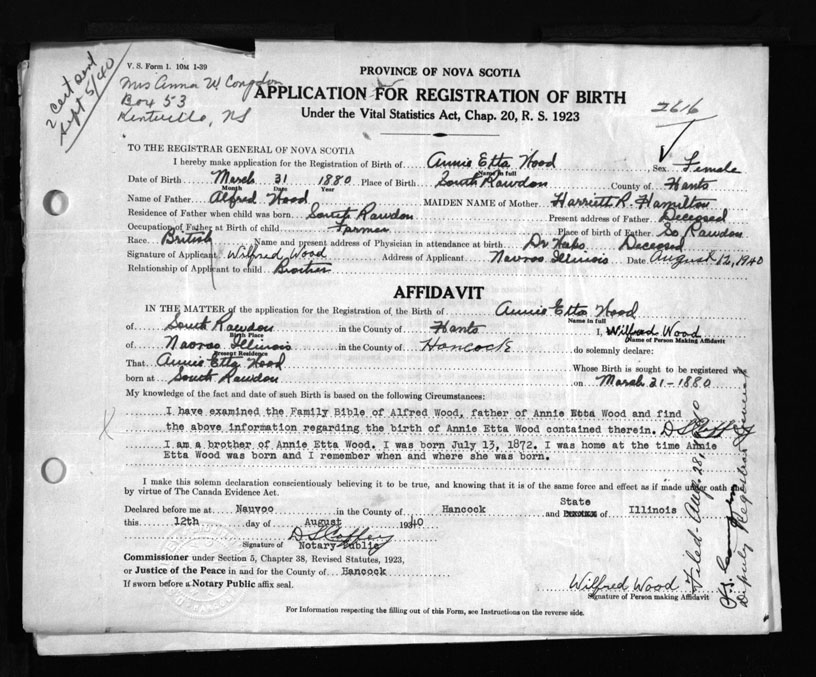 V. S. Form 1. 10M 1-39
2 cert and
Sept 5/40
Mrs Anna W Congdon
Box 53
Kentville, NS
PROVINCE OF NOVA SCOTIA
APPLICATION FOR REGISTRATION OF BIRTH
Under the Vital Statistics Act, Chap. 20, R. S. 1923
2616
TO THE REGISTRAR GENERAL OF NOVA SCOTIA
I hereby make application for the Registration of Birth of Annie Etta Wood Sex Female
Name in full
Date of Birth March 31 1880 Place of Birth South Rawdon County of Hants
Month Date Year
Name of Father Alfred Wood MAIDEN NAME of Mother Harriett R. Hamilton
Residence of Father when child was born South Rawdon Present address of Father Deceased
Occupation of Father at Birth of child Farmer Place of birth of Father So Rawdon
Race British Name and present address of Physician in attendance at birth Dr Deceased
Signature of Applicant Wilfred Wood Address of Applicant Nauvoo Illinois Date August 12, 1940
Relationship of Applicant to child Brother
AFFIDAVIT
IN THE MATTER of the application for the Registration of the Birth of Annie Etta Wood
Name in full
of South Rawdon in the County of Hants I, Wilfred Wood
Birth Place Name of Person Making Affidavit
of Nauvoo Illinois in the County of Hancock do solemnly declare:
Present Residence
That Annie Etta Wood Whose Birth is sought to be registered was
born at South Rawdon on March 31-1880
My knowledge of the fact and date of such Birth is based on the following Circumstances:
I have examined the Family Bible of Alfred Wood, father of Annie Etta Wood and find
the above information regarding the birth of Annie Etta Wood contained therein. D S Coffey
X
I am a brother of Annie Etta Wood. I was born July 13, 1872. I was home at the time Annie
Etta Wood was born and I remember when and where she was born.
I make this solemn declaration conscientiously believing it to be true, and knowing that it is of the same force and effect as if made under oath and
by virtue of The Canada Evidence Act.
Declared before me at Nauvoo in the County of Hancock and State Illinois
this 12th day of August 1940
D S Coffey
Signature of Notary Public
Commissioner under Section 5, Chapter 38, Revised Statutes, 1923,
or Justice of the Peace in and for the County of Hancock
If sworn before a Notary Public affix seal.
Wilfred Wood
Signature of Person making Affidavit
Filed: Aug. 28, 1940
Deputy Registrar General
For Information respecting the filling out of this Form, see Instructions on the reverse side.